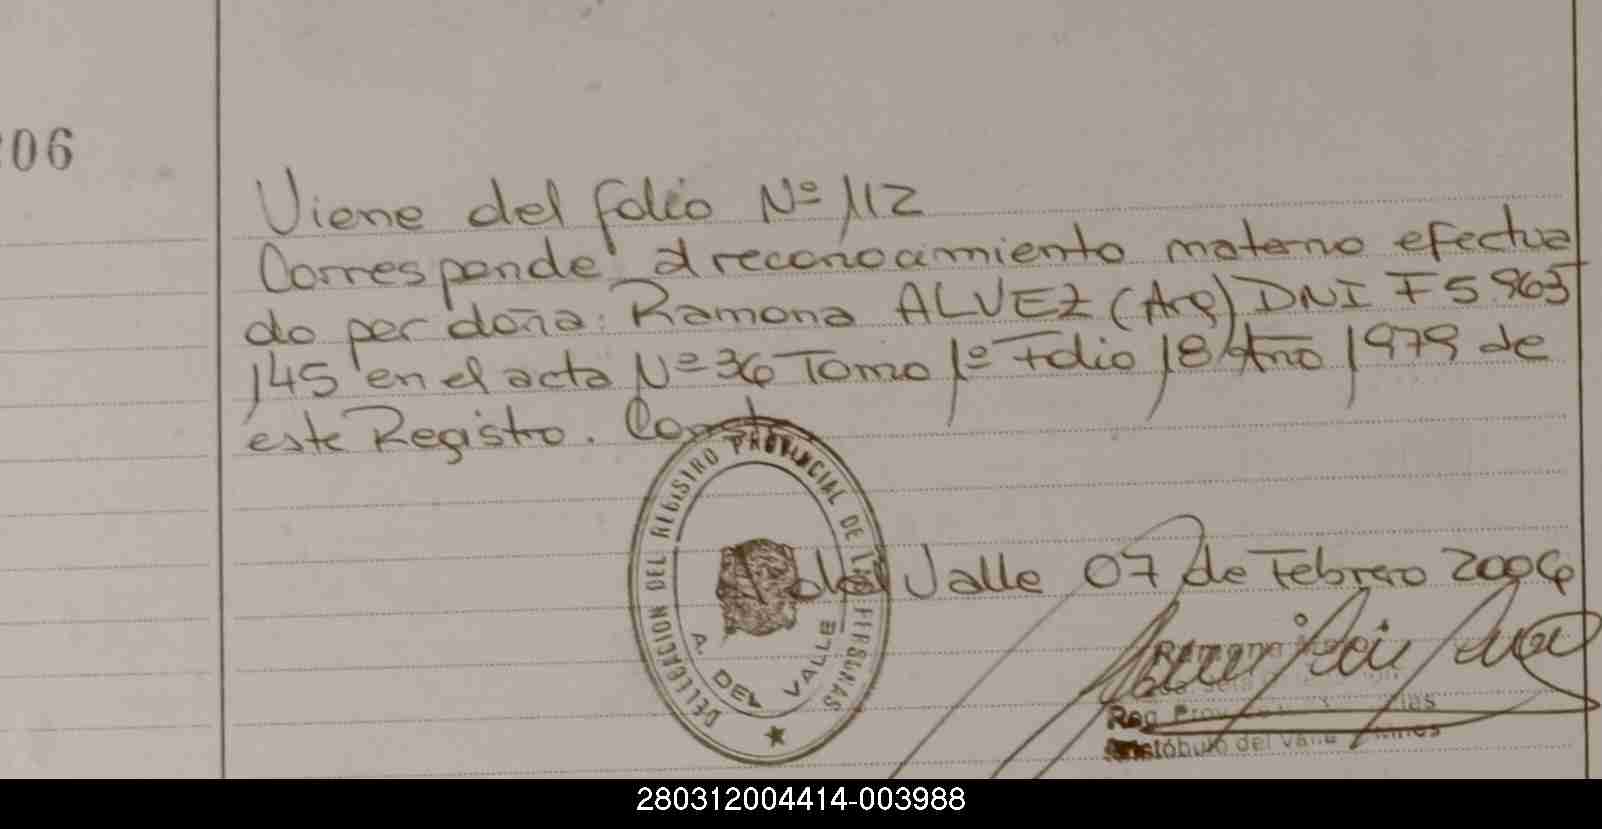 206
Viene del folio Nº 112
Corresponde al reconocimiento materno efectua
do por doña: Ramona ALVEZ (Arg) DNI F 5.963
145 en el acta Nº 36 Tomo 1º Folio 18 Año 1979 de
este Registro. Conste
DELEGACION DEL REGISTRO PROVINCIAL DE LAS PERSONAS
A. DEL VALLE
del Valle 07 de Febrero 2004
Ramona
Reg. Prov
Aristóbulo del Valle
280312004414-003988